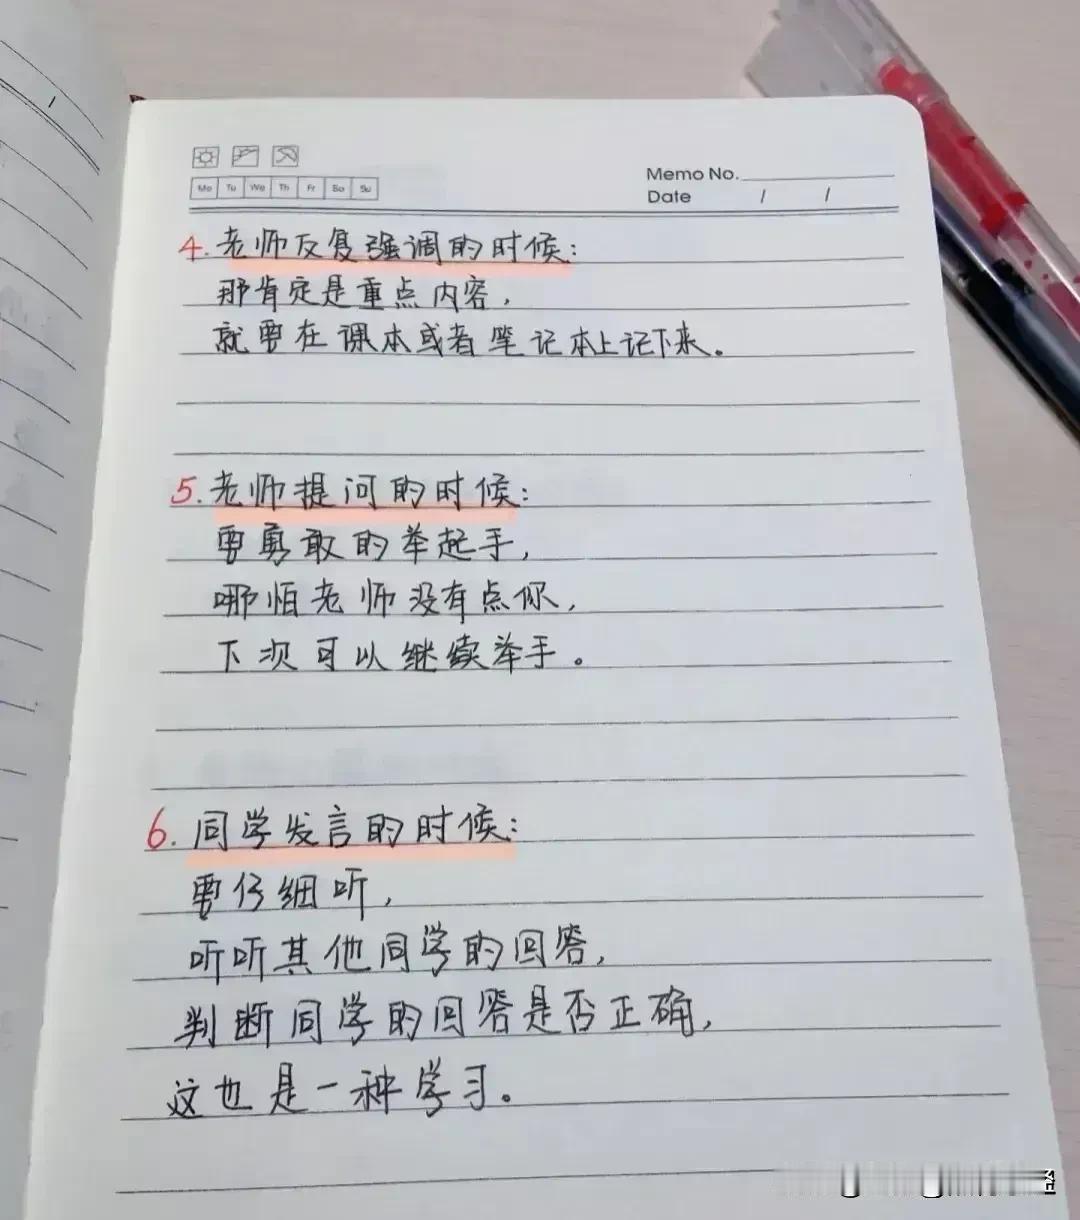 Mo Tu We Th Fr Sa Su
Memo No.
Date / /
4. 老师反复强调的时候：
那肯定是重点内容，
就要在课本或者笔记本上记下来。
5. 老师提问的时候：
要勇敢的举起手，
哪怕老师没有点你，
下次可以继续举手。
6. 同学发言的时候：
要仔细听，
听听其他同学的回答，
判断同学的回答是否正确，
这也是一种学习。